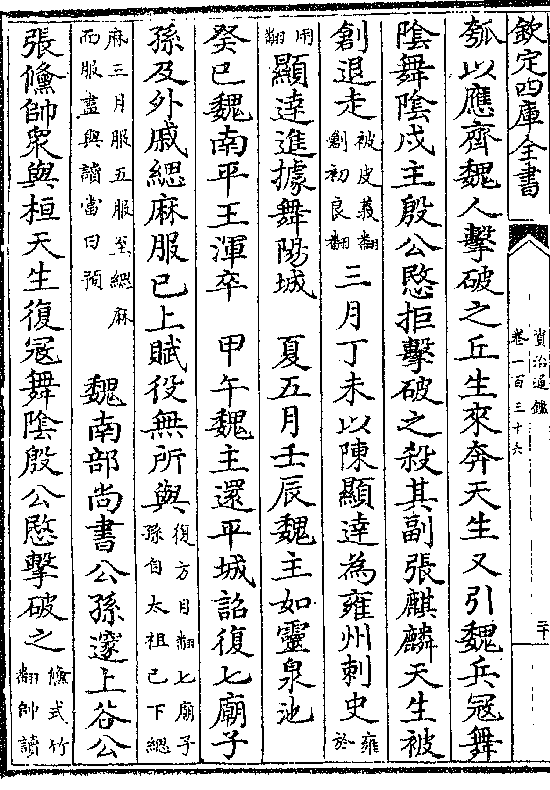 欽定四庫全書
資治通鑑
卷一百三十六
二十
瓠以應齊魏人擊破之丘生來奔天生又引魏兵冦舞
隂舞隂戍主殷公愍拒擊破之殺其副張麒麟天生被
創退走被皮義翻創初良翻 三月丁未以陳顯達為雍州刺史雍於
用翻 顯達進據舞隂城 夏五月壬辰魏主如靈泉池
癸巳魏南平王渾卒 甲午魏主還平城詔復七廟子
孫及外戚緦麻服已上賦役無所與復方目翻七廟子孫自太祖已下緦
麻三月服五服至緦麻而服盡與讀當曰預 魏南部尚書公孫邃上谷公
張儵帥衆與桓天生復冦舞隂殷公愍擊破之儵式竹翻帥讀